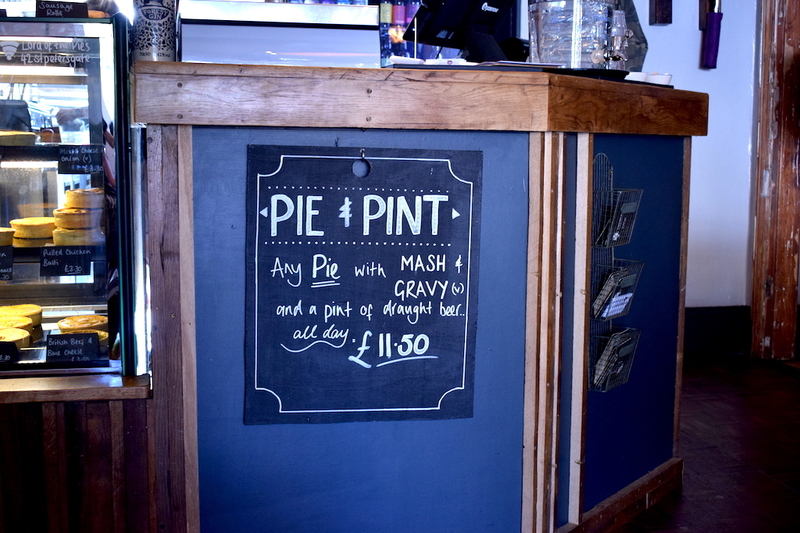 Sausage
Rolls
Lord of the Pies
42 St petersgate
Onion (v)
Pulled Chicken
Balti
£3.30
British Beef &
Blue Cheese
PIE & PINT
Any Pie with MASH &
GRAVY (v)
and a pint of draught beer..
all day. £11.50